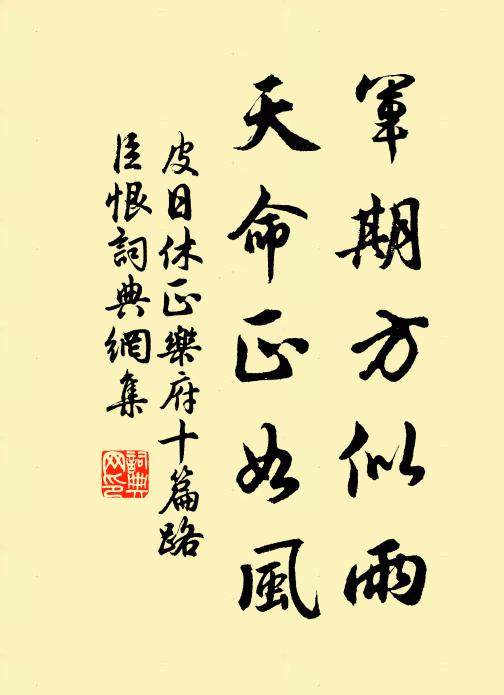 軍期方似雨
天命正如風
皮日休正樂府十篇路
臣恨詞典網集
詞典
网印